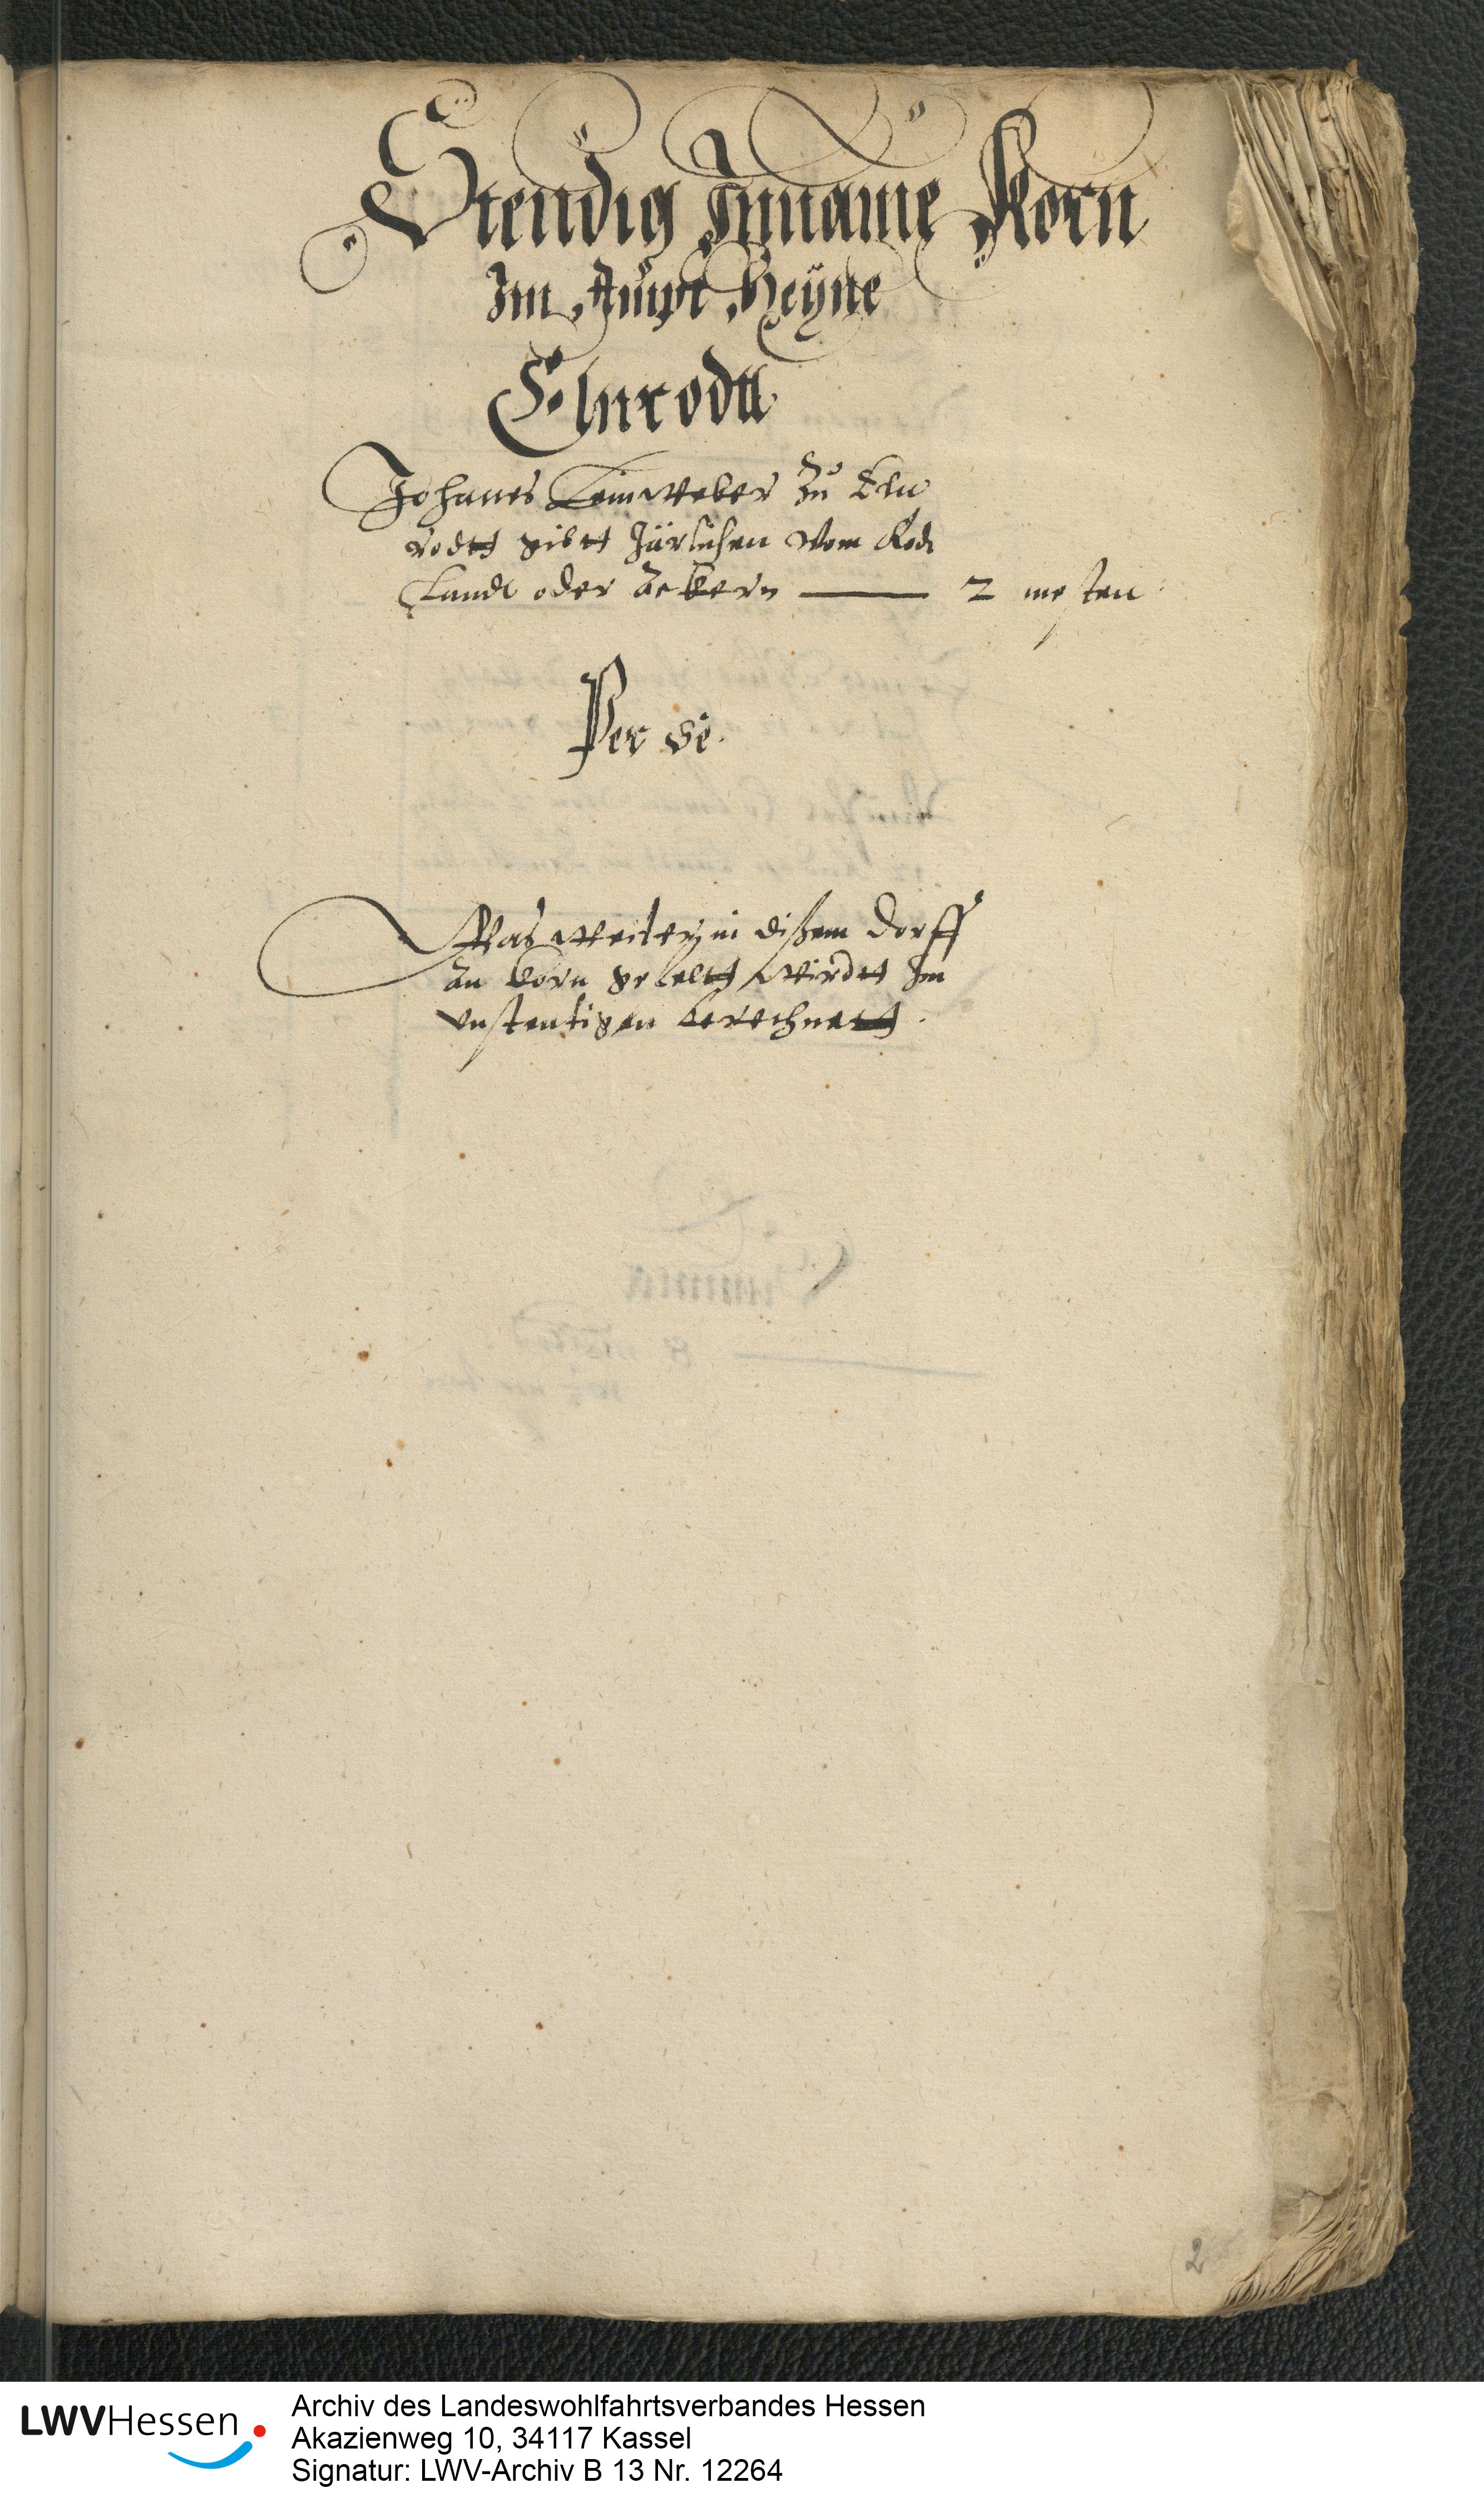 Stendig Inname Korn
Im Ampt Heyne
Elnrodtt
Johanes Leinweber zu Eln
rodtt gibtt Järlichen vom Rodt
Landt oder äckern — 2 mesten
Per se.
Was weiter in dißem Dorff
an korn gefeltt wirdtt Im
vnstentigen berechnett.
2
LWVHessen
Archiv des Landeswohlfahrtsverbandes Hessen
Akazienweg 10, 34117 Kassel
Signatur: LWV-Archiv B 13 Nr. 12264